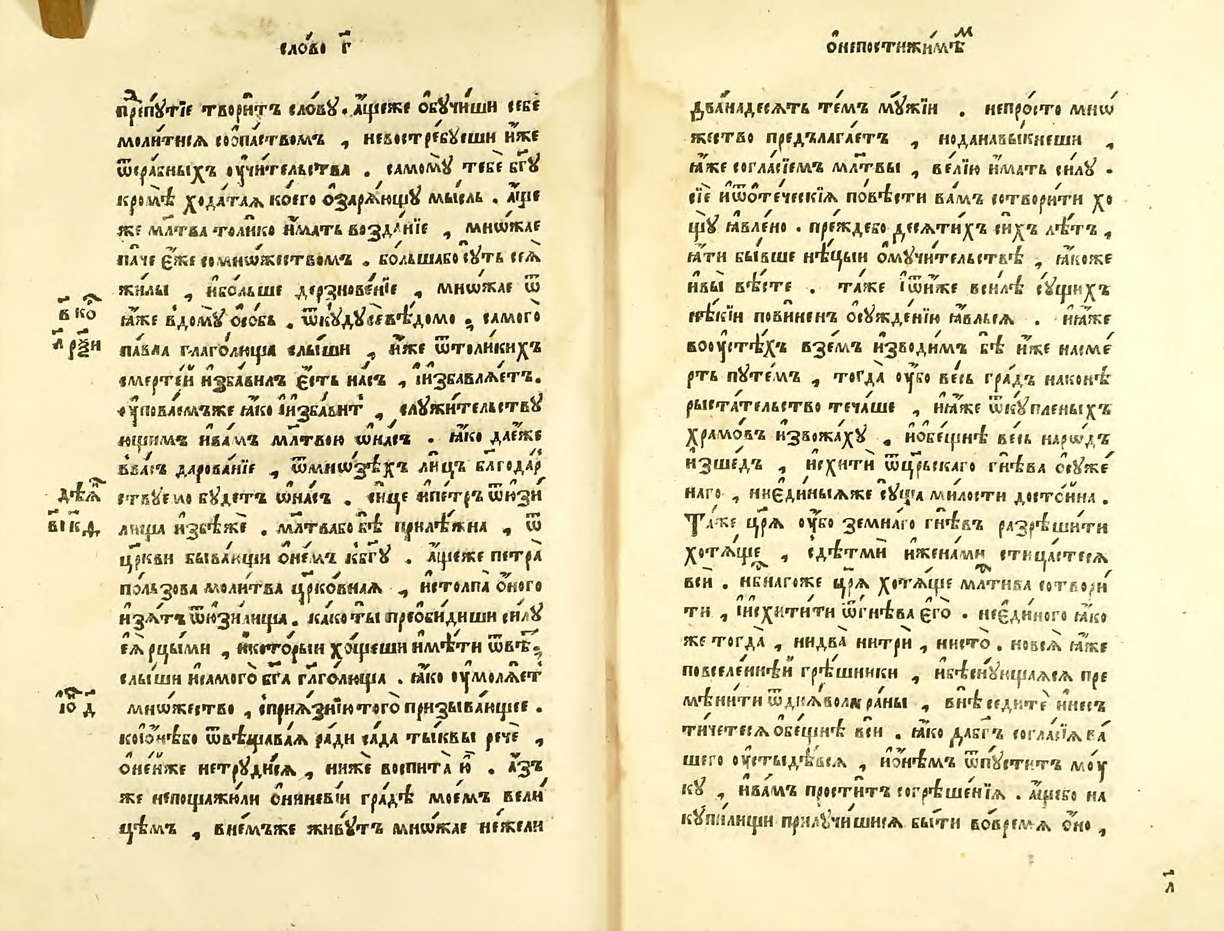 сло́во г҃
препꙋ́тїе твори́тъ сло́вꙋ. а҆́щеже ѡ҆бꙋчи́ши себѐ
моли́тисѧ соѻпа́ствомъ , невостре́бꙋеши и҆́же
ѿсра́бныхъ ᲂу҆чи́тельства . самомꙋ̀ тебѐ бг҃ꙋ
кромѣ̀ хода́таѧ коего ѻ҆зарѧ́ющꙋ мы́сль . а҆́ще
же мл҃тва толи́ко и҆́мать возда́нїе , мно́жае
па́че є҆́же сомно́жествомъ . бо́льшабо сꙋ́ть сеѧ̀
жи́лы , и҆бо́льше дерзнове́нїе , мно́жае ѿ
ꙗ҆́же вдомꙋ̀ ѻ҆со́бь . ѿкꙋ́дꙋсевѣ́домо , самого
в҃ ко
па́вла глаго́люща слы́ши , и҆́же ѿтоли́кихъ
сме́ртей и҆зба́вилъ є҆́сть на́съ , и҆и҆збавлѧ́етъ.
ᲂу҆пова́емъже ꙗ҆́ко и҆и҆зба́вит , слꙋжи́тельствꙋ
ющимъ и҆ва́мъ мл҃твою ѡ҆на́съ . ꙗ҆́ко дае́же
вва́съ дарова́нїе , ѿмно́зѣхъ ли́цъ благодар
ствꙋемо бꙋ́детъ ѡ҆на́съ . си́це и҆пе́тръ ѿи҆зи
дѣѧ
в҃і к҃д
лища и҆збѣ́же . мл҃твабо бѣ̀ прилѣ́жна , ѿ
цр҃кви быва́ющи ѻ҆не́мъ кбг҃ꙋ . а҆́щеже петра̀
по́льзова моли́тва цр҃ко́внаѧ , и҆столпа̀ ѻ҆́ного
и҆зѧ́тъ ѿи҆зи́лища . ка́коты̀ преѻби́диши си́лꙋ
є҆ѧ̀ рцы́ми , и҆кото́рыи хо́щеши и҆мѣ́ти ѿвѣ́.
слы́ши и҆самого̀ бг҃а гл҃аго́люща . ꙗ҆́ко ᲂу҆молѧ́ет
і҆ѡ д҃
мно́жество , сприѧ́знїютого̀ призыва́ющее .
коі҆ѻ́нѣбо ѿвѣщава́ѧ ра́ди са́да ты́квы речѐ ,
ѻ҆не́йже нетрꙋди́сѧ , нижѐ воспита̀ ю҆̀ . а҆́зъ
же непощажꙋ́ли ѻ҆ниневі́и гра́дѣ мое́мъ вели
цѣ́мъ , вне́мъже живꙋ́тъ мно́жае не́жели
ѻ҆непостижи́мѣм
двана́десѧть те́мъ мꙋ́жїи . непро́сто мно
жество предълага́етъ , ноданавы́кнеши ,
ꙗ҆́же согла́сїемъ мл҃твы , ве́лїю и҆́мать си́лꙋ .
сїѐ и҆ѿѻте́ческїѧ по́вѣсти ва́мъ сотвори́ти хо
щꙋ̀ ꙗ҆вле́но . пре́ждебо десѧти́хъ си́хъ лѣ́тъ ,
ꙗ҆́ти бы́вше нѣ́цыи ѻ҆мꙋчи́тельствѣ , ꙗ҆́коже
и҆вы̀ вѣ́сте . та́же і҆ѿни́же вси́лѣ сꙋ́щихъ
нѣ́кїи пови́ненъ ѻ҆сꙋжде́нїю ꙗ҆ви́лсѧ . и҆ꙗ҆́же
воᲂу҆стѣ́хъ взе́мъ и҆зводи́мъ бѣ̀ и҆́же насме́
рть пꙋте́мъ , тогда̀ ᲂу҆́бо ве́сь гра́дъ наконѣ
рыста́тельство теча́ше , и҆ꙗ҆́же ѿкꙋ́пленыхъ
хра́мовъ и҆звожа́хꙋ , и҆ѻ҆́бещнѣ ве́сь наро́дъ
и҆зше́дъ , и҆схитѝ ѿца́рьскаго гнѣ́ва ѻ҆сꙋже́
наго , ниє҆ди́ныѧже сꙋ́ща ми́лости досто́йна .
Та́же цр҃ѧ̀ ᲂу҆́бо земна́го гнѣ́въ разрѣши́ти
хотѧ́ще , сдѣ́тми и҆жена́ми стица́стесѧ
всѝ . нб҃на́гоже цр҃ѧ̀ хотѧ́ще мл҃тива сотвори́
ти , и҆и҆схити́ти ѿгнѣ́ва є҆гѡ̀ . неє҆ди́ного ꙗ҆́ко
же тогда̀ , нидва̀ нитрѝ , нисто̀ . новсѧ̀ ꙗ҆́же
повселе́ннѣй грѣ́шники , и҆бѣснꙋ́ющаѧсѧ пре
мѣни́ти ѿдиѧ́волѧ ра́ны , внѣ̀ седитѐ и҆нест
ти́четесѧ ѻ҆бещнѣ̀ всѝ . ꙗ҆́ко дабг҃ъ согла́сїѧва́
шего ᲂу҆стыдѣ́всѧ , и҆ѻ҆нѣ́мъ ѿпꙋ́стит мꙋ́
кꙋ , и҆ва́мъ прости́тъ согрѣше́нїѧ . а҆́щебо на
кꙋпи́лищи прилꙋчи́шисѧ бы́ти во́времѧ ѻ҆́но ,
л҃